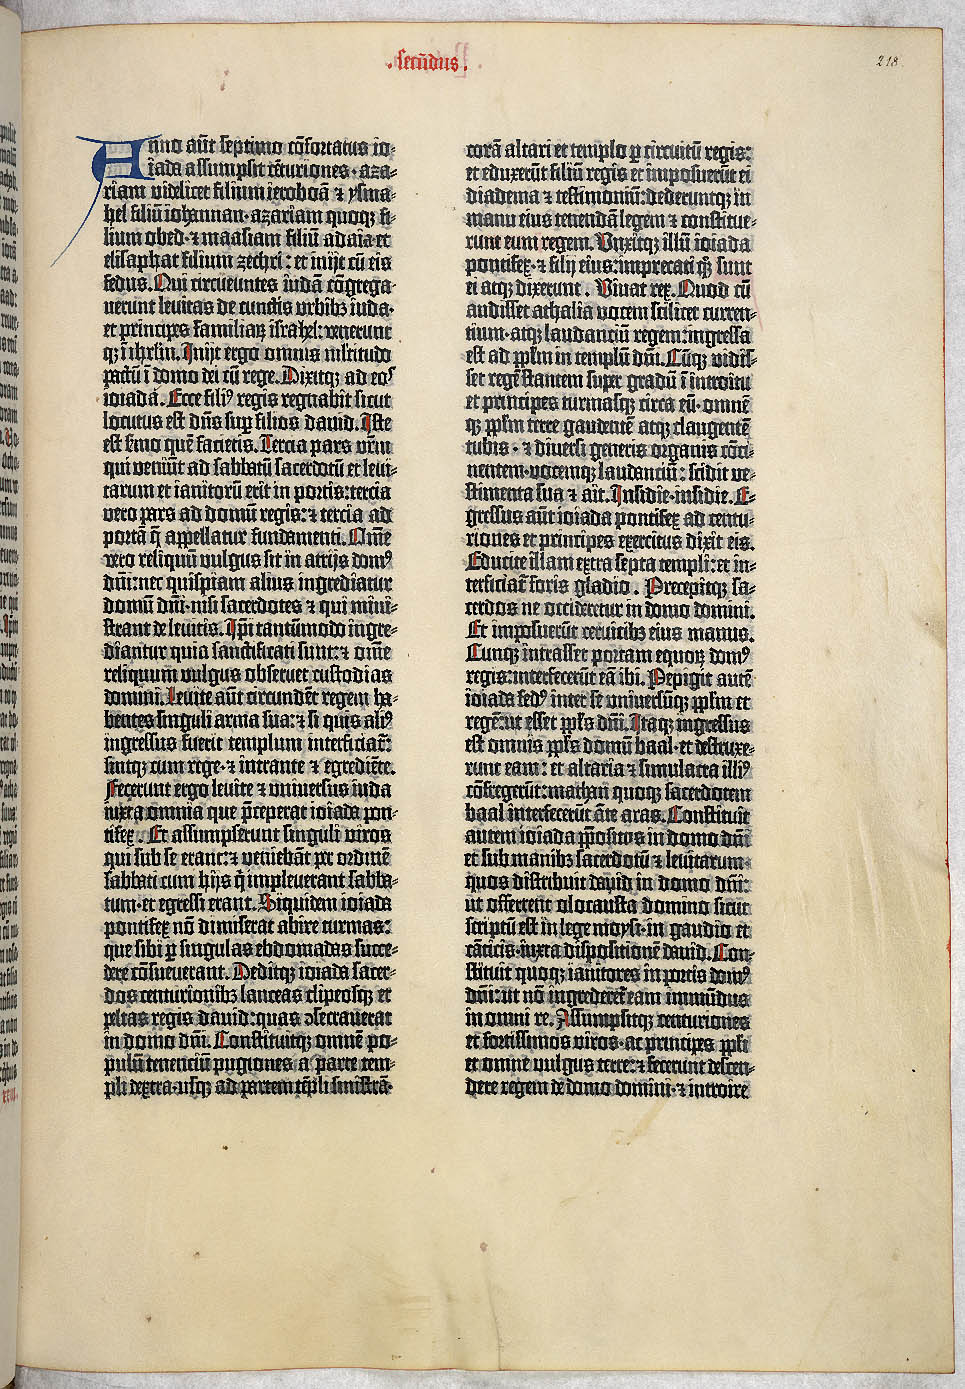 .secūdus.
218
Anno aūt septimo cōfortatus io-
iada assumpsit cēturiones· aza-
riam videlicet filium ieroboā ⁊ ysma-
hel filiū iohannan· azariam quoqꝫ fi-
lium obed· ⁊ maasiam filiū adaia et
elisaphat filium zechri: et inijt cū eis
fedus. Qui circūeuntes iudā cōgrega-
uerunt leuitas de cunctis urbibꝫ iuda·
et principes familiaꝝ israhel: venerunt
qꝫ ī ihrl̄m. Inijt ergo omnis ml̄titudo
pactū ī domo dei cū rege. Dixitqꝫ ad eos
ioiada. Ecce filiꝰ regis regnabit sicut
locutus est dn̄s sup filios dauid. Iste
est sermo quē facietis. Tercia pars vr̄m
qui veniūt ad sabbatū sacerdotū et leui-
tarum et ianitorū erit in portis: tercia
vero pars ad domū regis: ⁊ tercia ad
portā q̄ appellatur fundamenti. Om̄e
vero reliquū vulgus sit in atrijs domꝰ
dn̄i: nec quispiam alius ingrediatur
domū dn̄i· nisi sacerdotes ⁊ qui mini-
strant de leuitis. Ip̄i tantūmodo ingre-
diantur quia sanctificati sunt: ⁊ om̄e
reliquum vulgus obseruet custodias
domini. Leuite aūt circundēt regem ha-
bentes singuli arma sua: ⁊ si quis aliꝰ
ingressus fuerit templum interficiat̄:
sintqꝫ cum rege· ⁊ intrante ⁊ egrediēte.
Fecerunt ergo leuite ⁊ vniuersus iuda
iuxta omnia que p̄ceperat ioiada pon-
tifex. Et assumpserunt singuli viros
qui sub se erant: ⁊ veniebāt per ordinē
sabbati cum hijs q̄ impleuerant sabba-
tum· et egressi erant. Siquidem ioiada
pontifex nō dimiserat abire turmas:
que sibi ꝑ singulas ebdomadas succe-
dere cōsueuerant. Deditqꝫ ioiada sacer-
dos centurionibꝫ lanceas clipeosqꝫ et
peltas regis dauid: quas ↄsecrauerat
in domo dn̄i. Constituitqꝫ omnē po-
pulū tenenciū pugiones a parte tem-
pli dextra· usqꝫ ad partem tēpli sinistrā·
corā altari et templo ꝑ circuitū regis:
et eduxerūt filiū regis et imposuerūt ei
diadema ⁊ testimoniū: dederuntqꝫ in
manu eius tenendā legem ⁊ constitue-
runt eum regem. Vnxitqꝫ illū ioiada
pontifex· ⁊ filij eius: imprecati qꝫ sunt
ei atqꝫ dixerunt. Viuat rex. Quod cū
audisset athalia vocem scilicet curren-
tium· atqꝫ laudanciū regem: ingressa
est ad pp̄lm in templū dn̄i. Cūqꝫ vidis-
set regē stantem super gradū ī introitu
et principes turmasqꝫ circa eū· omnē
qꝫ pp̄lm terre gaudentē atqꝫ clangentē
tubis· ⁊ diuersi generis organis cōci-
nentem· vocemqꝫ laudanciū: scidit ve-
stimenta sua ⁊ ait. Insidie· insidie. E-
gressus aūt ioiada pontifex ad centu-
riones et principes exercitus dixit eis.
Educite illam extra septa templi: et in-
terficiat̄ foris gladio. Precepitqꝫ sa-
cerdos ne occideretur in domo domini.
Et imposuerūt ceruicibꝫ eius manus.
Cunqꝫ intrasset portam equoꝝ domꝰ
regis: interfecerūt eā ibi. Pepigit autē
ioiada fedꝰ inter se vniuersūqꝫ pp̄lm et
regē: ut esset pp̄ls dn̄i. Itaqꝫ ingressus
est omnis pp̄ls domū baal· et destruxe-
runt eam: et altaria ⁊ simulacra illiꝰ
cōfregerūt: mathan quoqꝫ sacerdotem
baal interfecerūt āte aras. Constituit
autem ioiada p̄positos in domo dn̄i
et sub manibꝫ sacerdotū ⁊ leuitarum·
quos distribuit dauid in domo dn̄i:
ut offerrent olocausta domino sicut
scriptū est in lege moysi· in gaudio et
cāticis· iuxta dispositionē dauid. Con-
stituit quoqꝫ ianitores in portis domꝰ
dn̄i: ut nō ingrederet̄ eam immūdus
in omni re. Assumpsitqꝫ centuriones
et fortissimos viros· ac principes pp̄li
et omne vulgus terre: ⁊ fecerunt descen-
dere regem de domo domini· ⁊ introire